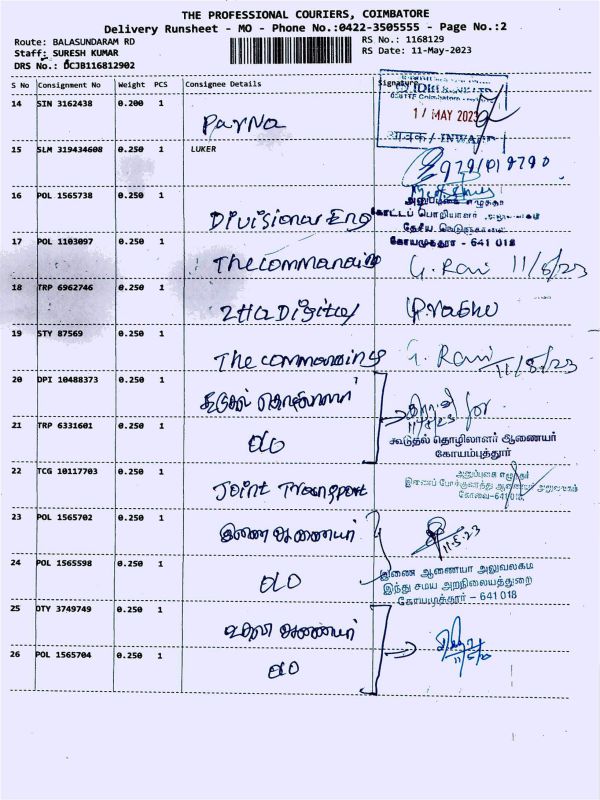 THE PROFESSIONAL COURIERS, COIMBATORE
Delivery Runsheet - MO - Phone No.:0422-3505555 - Page No.:2
Route: BALASUNDARAM RD
RS No.: 1168129
Staff: SURESH KUMAR
RS Date: 11-May-2023
DRS No.: DCJB116812902
S No Consignment No Weight PCS Consignee Details Signature
14 SIN 3162438 0.200 1
Parna
17 MAY 2023
आवक / INWARD
15 SLM 319434608 0.250 1 LUKER
16 POL 1565738 0.250 1
Divisional Eng
கோயமுத்தூர் - 641 018
17 POL 1103097 0.250 1
The commanding G. Ravi 11/5/23
18 TRP 6962746 0.250 1
Prabhu
19 STY 87569 0.250 1
The commanding G. Ravi 11/5/23
20 DPI 10488373 0.250 1
for
21 TRP 6331601 0.250 1
do
கூடுதல் தொழிலாளர் ஆணையர்
கோயம்புத்தூர்
22 TCG 10117703 0.250 1
Joint Transport
23 POL 1565702 0.250 1
இணை ஆணையர்
11.5.23
24 POL 1565598 0.250 1
do
இணை ஆணையர் அலுவலகம்
இந்து சமய அறநிலையத்துறை
கோயமுத்தூர் - 641 018
25 OTY 3749749 0.250 1
உதவி ஆணையர்
26 POL 1565704 0.250 1
do